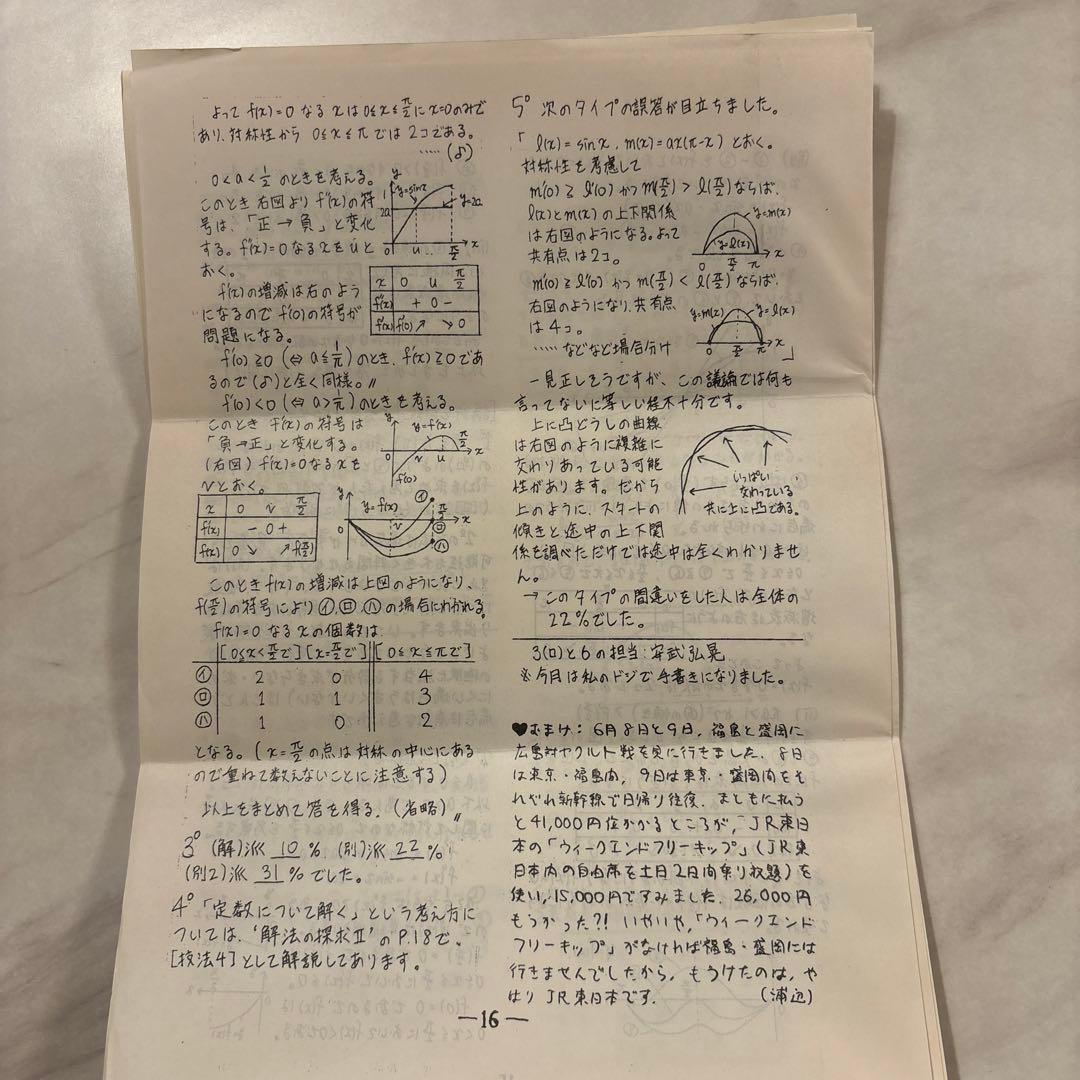 よって f(x)=0 なる x は 0≤x≤π/2 に x=0のみで
あり、対称性から 0≤x≤π では 2コである。
‥‥‥(♂)
0<a<1/2 のときを考える。
このとき右図より f″(x)の符
号は、「正→負」と変化
する。f″(x)=0 なる x を u と
おく。
y
y=sinx
1
2a
y=2a
0 u π/2 x
f′(x)の増減は右のよう
になるので f′(0)の符号が
問題になる。
x 0 u π/2
f″(x) + 0 −
f′(x) f′(0) ↗ ↘ 0
f′(0)≥0 (⇔ a≤1/π) のとき、f′(x)≥0 であ
るので (♂) と全く同様。〃
f′(0)<0 (⇔ a>1/π) のときを考える。
このとき f′(x) の符号は
「負→正」と変化する。
(右図) f′(x)=0 なる x を
v とおく。
y y=f′(x)
v u π/2 x
f′(0)
x 0 v π/2
f′(x) − 0 +
f(x) 0 ↘ ↗ f(π/2)
y y=f(x) イ
0 v π/2 x
ロ
ハ
このとき f(x) の増減は上図のようになり、
f(π/2) の符号により イ、ロ、ハ の場合にわかれる。
f(x)=0 なる x の個数は
[0≤x<π/2で] [x=π/2で] [0≤x≤πで]
イ 2 0 4
ロ 1 1 3
ハ 1 0 2
となる。(x=π/2 の点は対称の中心にある
ので重ねて数えないことに注意する)
以上をまとめて答を得る。(省略)〃
3° (解)派 10 % (別)派 22 %
(別2)派 31 % でした。
4° 「定数について解く」という考え方に
ついては、‘解法の探求Ⅱ’の P.18で、
[技法4]として解説してあります。
5° 次のタイプの誤答が目立ちました。
「 l(x)=sinx, m(x)=ax(π−x) とおく。
対称性を考慮して
m′(0)≥l′(0) かつ m(π/2)>l(π/2) ならば、
l(x)とm(x) の上下関係
は右図のようになる。よって
共有点は2コ。
y=m(x)
y=l(x)
0 π/2 π x
m′(0)≥l′(0) かつ m(π/2)<l(π/2) ならば、
右図のようになり、共有点
は4コ。
‥‥‥などなど場合分け 」
y=m(x) y=l(x)
0 π/2 π x
一見正しそうですが、この議論では何も
言ってないに等しい程不十分です。
上に凸どうしの曲線
は右図のように複雑に
交わりあっている可能
性があります。だから
上のように、スタートの
傾きと途中の上下関
係を調べただけでは途中は全くわかりませ
ん。
いっぱい
交わっている
共に上に凸である。
→ このタイプの間違いをした人は全体の
22%でした。
3(ロ)と6の担当:安武弘晃
※今月は私のドジで手書きになりました。
♥おまけ:6月8日と9日、福島と盛岡に
広島対ヤクルト戦を見に行きました。8日
は東京・福島間、9日は東京・盛岡間をそ
れぞれ新幹線で日帰り往復。まともに払う
と41,000円位かかるところが、JR東日
本の「ウィークエンドフリーキップ」(JR東
日本内の自由席を土日2日間乗り放題)を
使い、15,000円ですみました。26,000円
もうかった?! いやいや、「ウィークエンド
フリーキップ」がなければ福島・盛岡には
行きませんでしたから、もうけたのは、や
はりJR東日本です。 (浦辺)
—16—